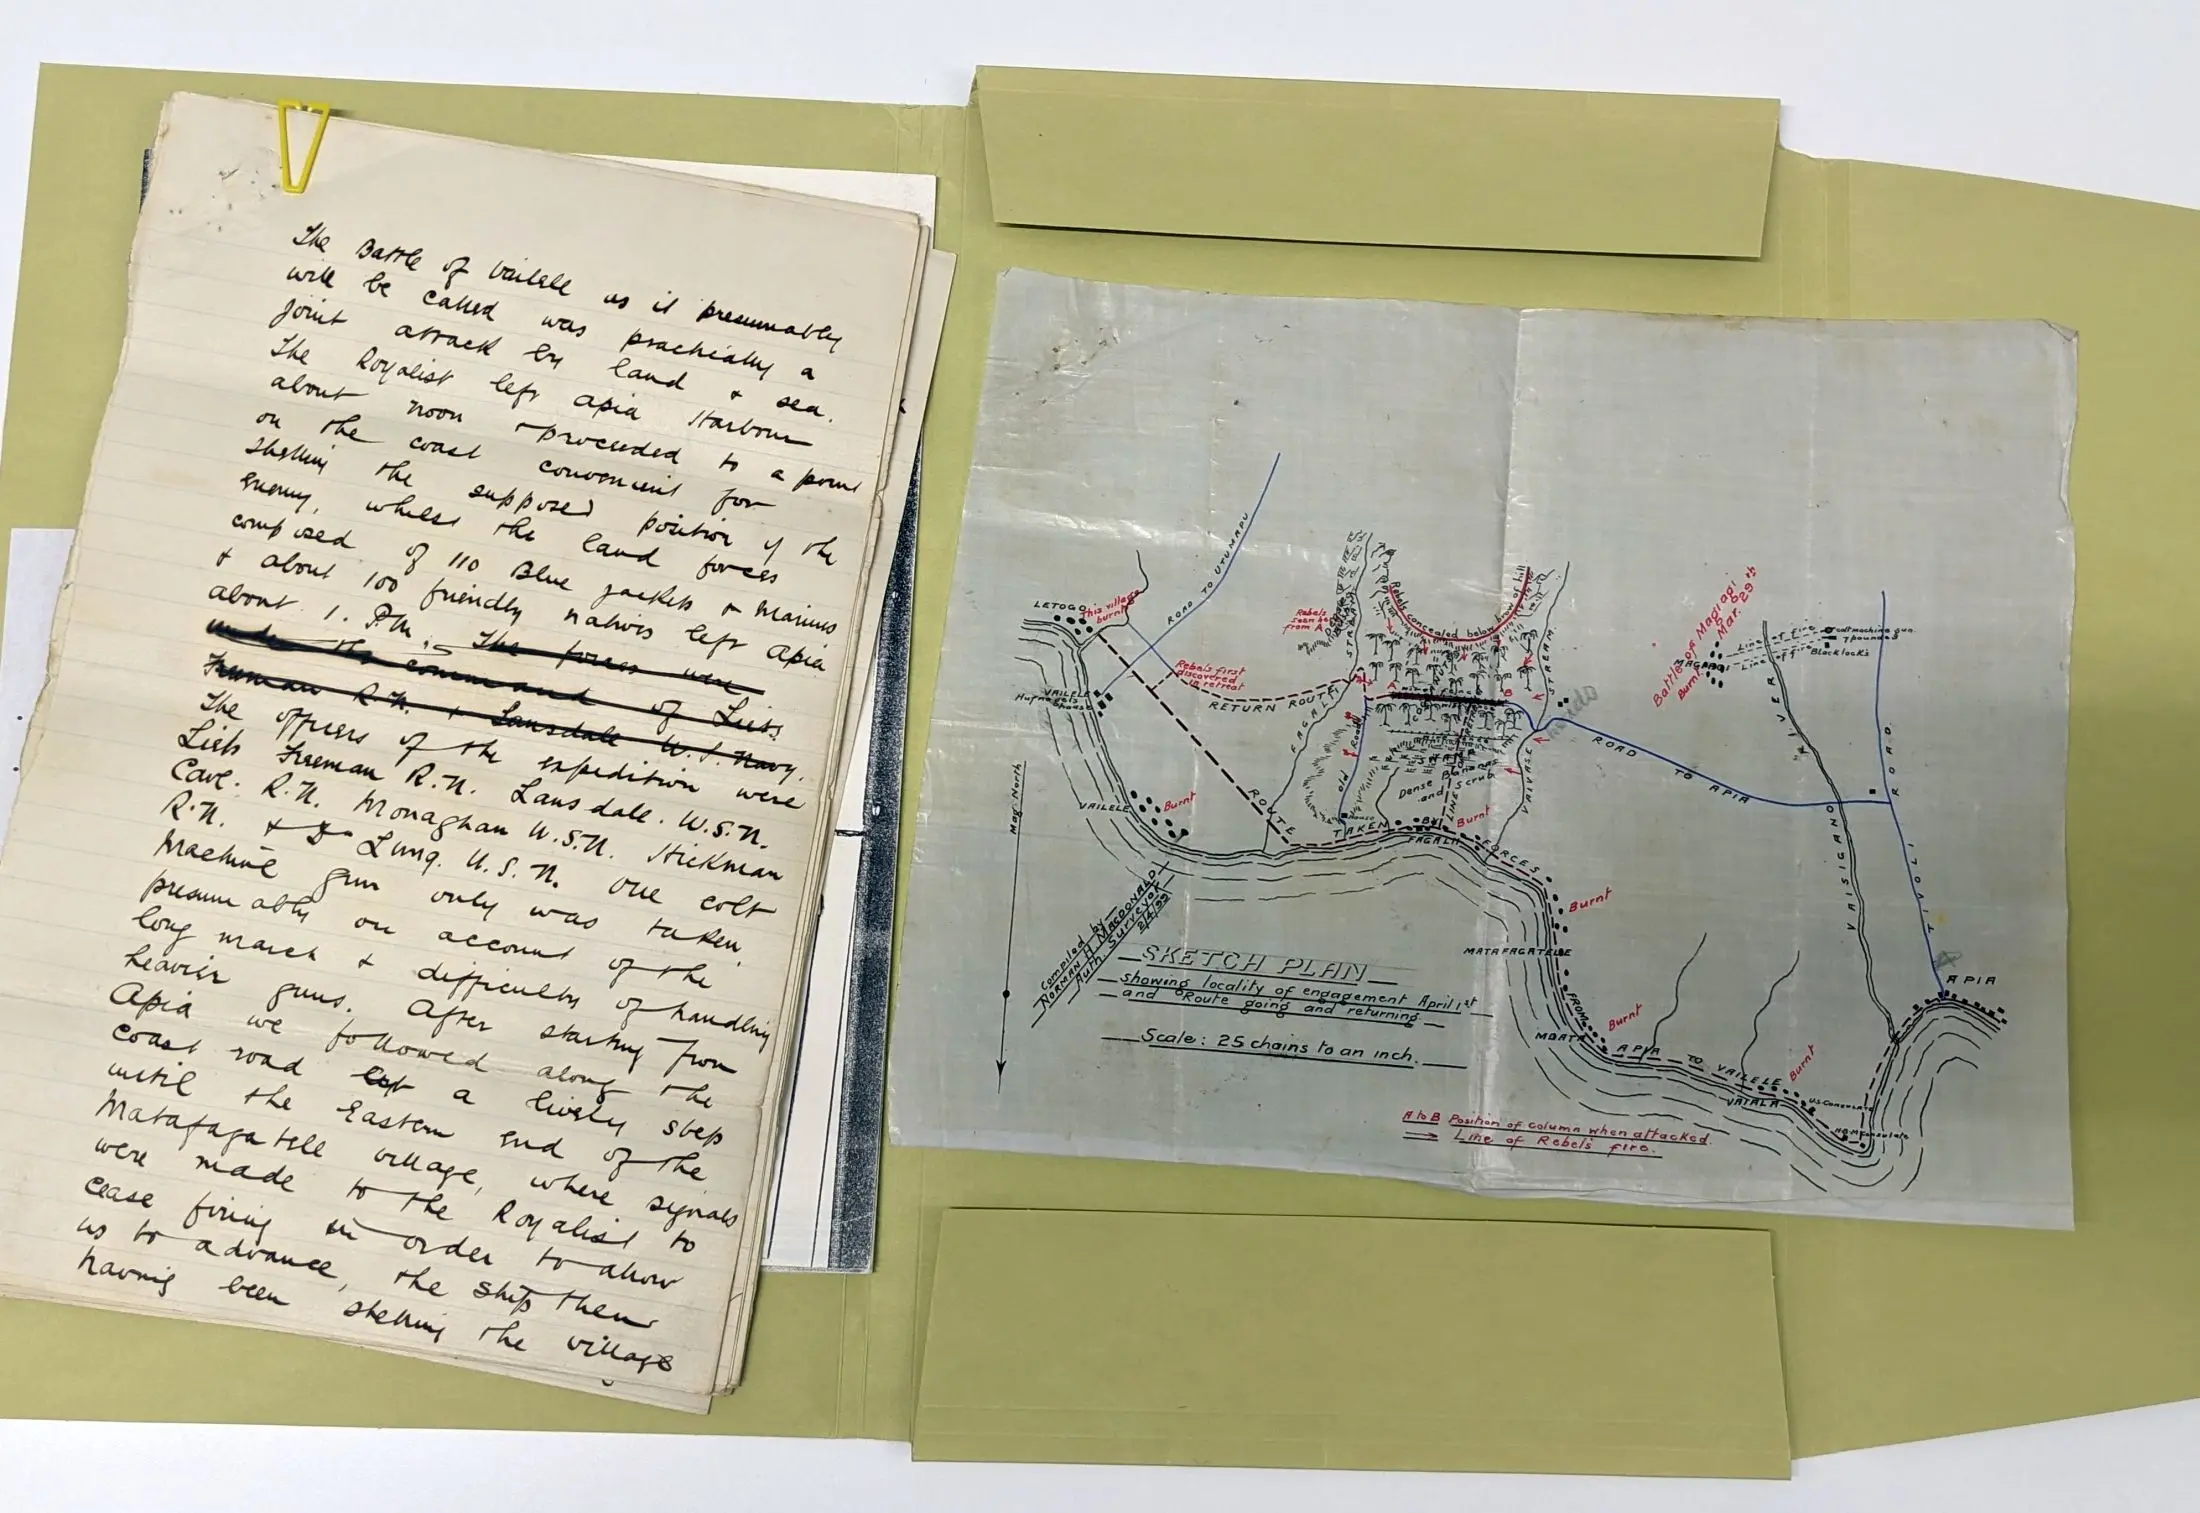 The Battle of Vailele as it presumably
will be called was practically a
joint attack by land & sea.
The Royalist left Apia Harbour
about noon & proceeded to a point
on the coast convenient for
shelling the supposed position of the
enemy, whilst the land forces
composed of 110 Blue jackets & Marines
& about 100 friendly natives left Apia
about 1. P.M. The forces were
under the command of Lieuts
Freeman R.N. & Lansdale U.S. Navy.
The officers of the expedition were
Lieuts Freeman R.N. Lansdale. U.S.N.
Cave. R.N. Monaghan U.S.N. Hickman
R.N. & Lung. U.S.N. One colt
Machine gun only was taken,
presumably on account of the
long march & difficulty of handling
heavier guns. After starting from
Apia we followed along the
coast road at a lively step
until the Eastern end of the
Matafagatele village, where signals
were made to the Royalist to
cease firing in order to allow
us to advance, the ship then
having been shelling the village
ROAD TO UTUMAPU
LETOGO
This village
burnt
Rebels
from A
STREAM
Rebels concealed below brow of hill
STREAM
Battle of Magiagi
Mar. 29th
Burnt
MAGIAGI
Line of fire
Line of fire
Colt machine gun.
7 pounder
Blocklocks
VAILELE
Hufnagels
house
Rebels first
discovered
in retreat
RETURN ROUTE
FAGALII
A
B
Old
Road
Dense Bananas
and scrub
VAIVASE
ROAD TO APIA
RIVER
VAISIGANO
ROAD
TIVOLI
Mag North
VAILELE
Burnt
ROUTE
TAKEN
BY
FORCES
FAGALII
Burnt
Burnt
MATAFAGATELE
FROM
APIA TO VAILELE
Burnt
MOATA
Burnt
VAIALA
U.S. Consulate
H.B.M. Consulate
APIA
Compiled by
NORMAN H MACDONALD
Auth Surveyor
2/4/99
SKETCH PLAN
showing locality of engagement April 1st
and Route going and returning
Scale: 25 chains to an inch.
A to B Position of column when attacked.
Line of Rebels fire.